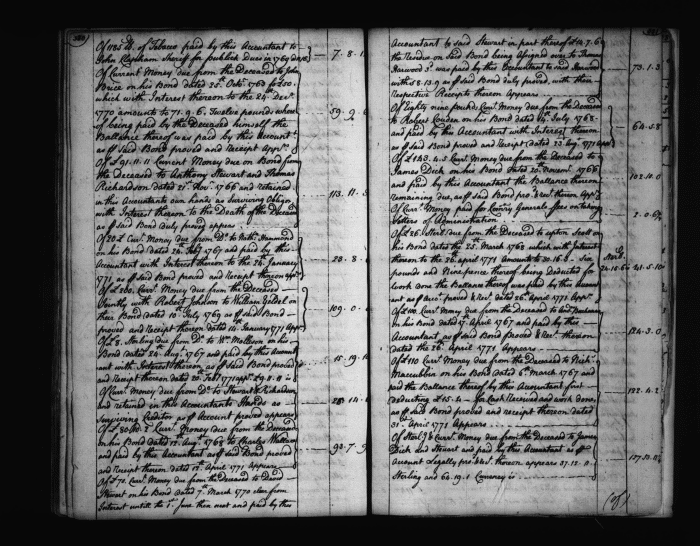 Of 1185 lb. of Tobacco paid by this Accountant to
John Clapham Sheriff for publick Dues in 1769 7 . 8 . 1
Of Currant Money due from the Deceased to John
Brice on his Bond dated 25. Octr. 1760 for £50.
which with Interest thereon to the 24th. Decr.
1770 amounts to 71.9.6. Twelve pounds whereof
of being paid by the Deceased himself the
Ballance thereof was paid by this Accountt. 59 . 9 . 6
as p said Bond proved and Receipt Apprs.
Of £91.11.11 Current Money due on Bond from
the Deceased to Anthony Stewart and Thomas
Richardson dated 21st. Novr. 1766 and retained
in this Accountants own hands as Surviving Obligor 113 . 11 .
with Interest thereon to the Death of the Deceased
as p said Bond duly proved appears
Of 20£ Curr. Money due from Do. to Nathl. Hammond
on his Bond dated 24. July 1767 and paid by this
Accountant with Interest thereon to the 24. January 23 . 8 .
1771 as p said Bond proved and Receipt thereon appr.
Of £200. Curr. Money due from the Deceased
Jointly with Robert Johnson to William
their Bond dated 10th. July 1769 as p said Bond 109 . 0 .
proved and Receipt thereon dated 14. January 1771 Appr.
Of £8. Sterling due from Do. to Wm. on his
Bond dated 24. Augt. 1767 and paid by this Account
ant with Interest thereon as p said Bond proved 15 . 19 .
and Receipt thereon dated 20. Feb. 1771 appr.
Of Curr. Money due from Do. to Stewart & Richardson
and retained in this Accountants Hands as
Surviving Creditor as p Account proved appears 23 . 14 .
Of £ Curr. Money due from the Deceased
on his Bond dated 12. Augt. 1768 to Charles Wallace
and paid by this Accountant as p said Bond proved 92 . 7 . 9
and Receipt thereon dated 12. April 1771 Appears
Of £70. Curr. Money due from the Deceased to David
Stewart on his Bond dated 7th. March 1770 clear from
Interest untill the 1st. June then next and paid by this
Accountant to said Stewart in part thereof £14.7.6
the residue on said Bond being Assigned over to Thomas
Harwood 3d. was paid by this Accountant to said Harwood 73 . 1 . 3
with £ 8.13.9 as p said Bond duly proved, with their
Respective Receipts thereon Appears
Of Eighty nine pounds Curr. Money due from the Deceased
to Robert Couden on his Bond dated 14. July 1768
and paid by this Accountant with Interest thereon 64 . 5 . 8
as p said Bond proved and Receipt dated 23. Augt. 1771 appr.
Of £ Curr. Money due from the Deceased to
James Dick on his Bond dated 20. Novemr. 1768
and paid by this Accountant the Ballance thereon 102 . 14 . 0
remaining due, as p said Bond pro. & Recr. thereon Appr.
Of Curr. Money paid for Commy Generals fees on taking
Letters of Administration 2 . 0 . 6
Of £26. Sterl. due from the Deceased to Upton Scott on
his Bond dated the 25. March 1768 which with Interest
thereon to the 26. April 1771 amounts to 30.16.6. Six
pounds and Nine pence thereof being Deducted for Sterl. 24.15.6 41 . 5 . 10
work done the Ballance thereof was paid by this Account
ant as p Acct. proved & Rect. dated 26. April 1771 Appr.
Of £100. Curr. money due from the Deceased to
on his Bond dated 17. April 1767 and paid by this
Accountant as p said Bond proved & Recr. thereon 124 . 3 . 0
dated the 26. April 1771 Appears
Of £110 Curr. Money due from the Deceased to Nichs.
Maccubbin on his Bond dated 6th. March 1767 and
paid the Ballance thereof by this Accountant first
deducting £15.4 for Cash Received and work done, 132 . 4 . 2
as p said Bond proved and receipt thereon dated
31. April 1771 Appears
Of Sterl. & Curr. Money due from the Deceased to James
Dick and Stewart and paid by this Accountant as p
Account Legally pro. & recd. thereon appears 37.12.0
Sterling and 66.19.1 Currency is